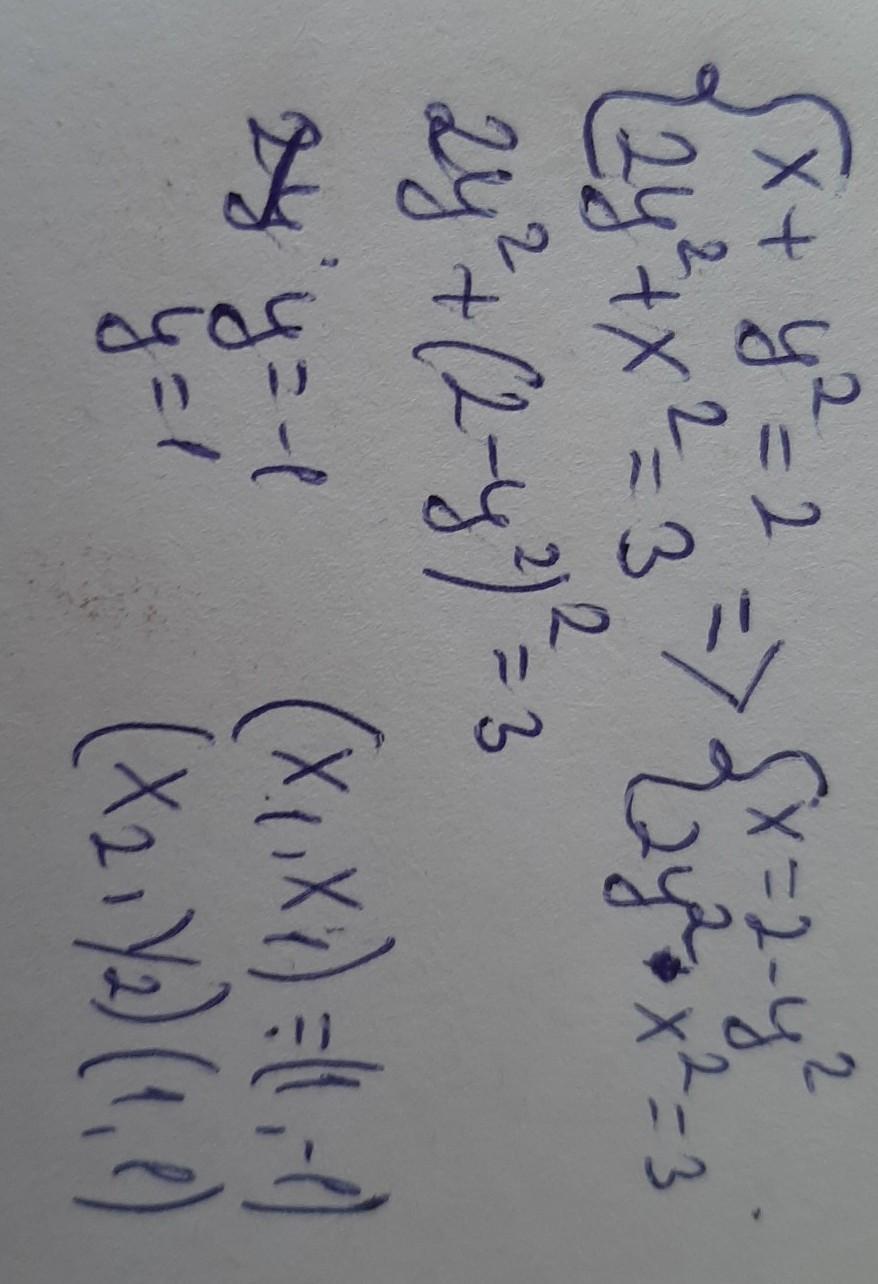 {x + y² = 2
{2y² + x² = 3 => {x = 2 - y²
{2y² · x² = 3
2y² + (2 - y²)² = 3
y = -1 (x1, x1) = (1, -1)
y = 1 (x2, y2) (1, 1)